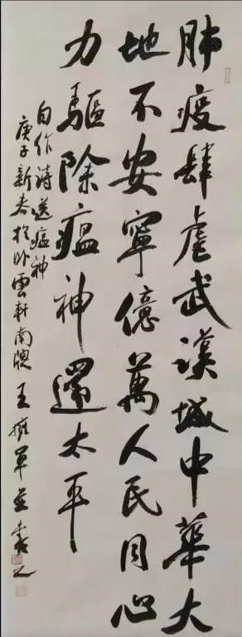 肺疫肆虐武漢城中華大
地不安寧億萬人民同心
力驅除瘟神還太平
自作詩送瘟神
庚子新春於卧雲軒南窗王擁軍並書之